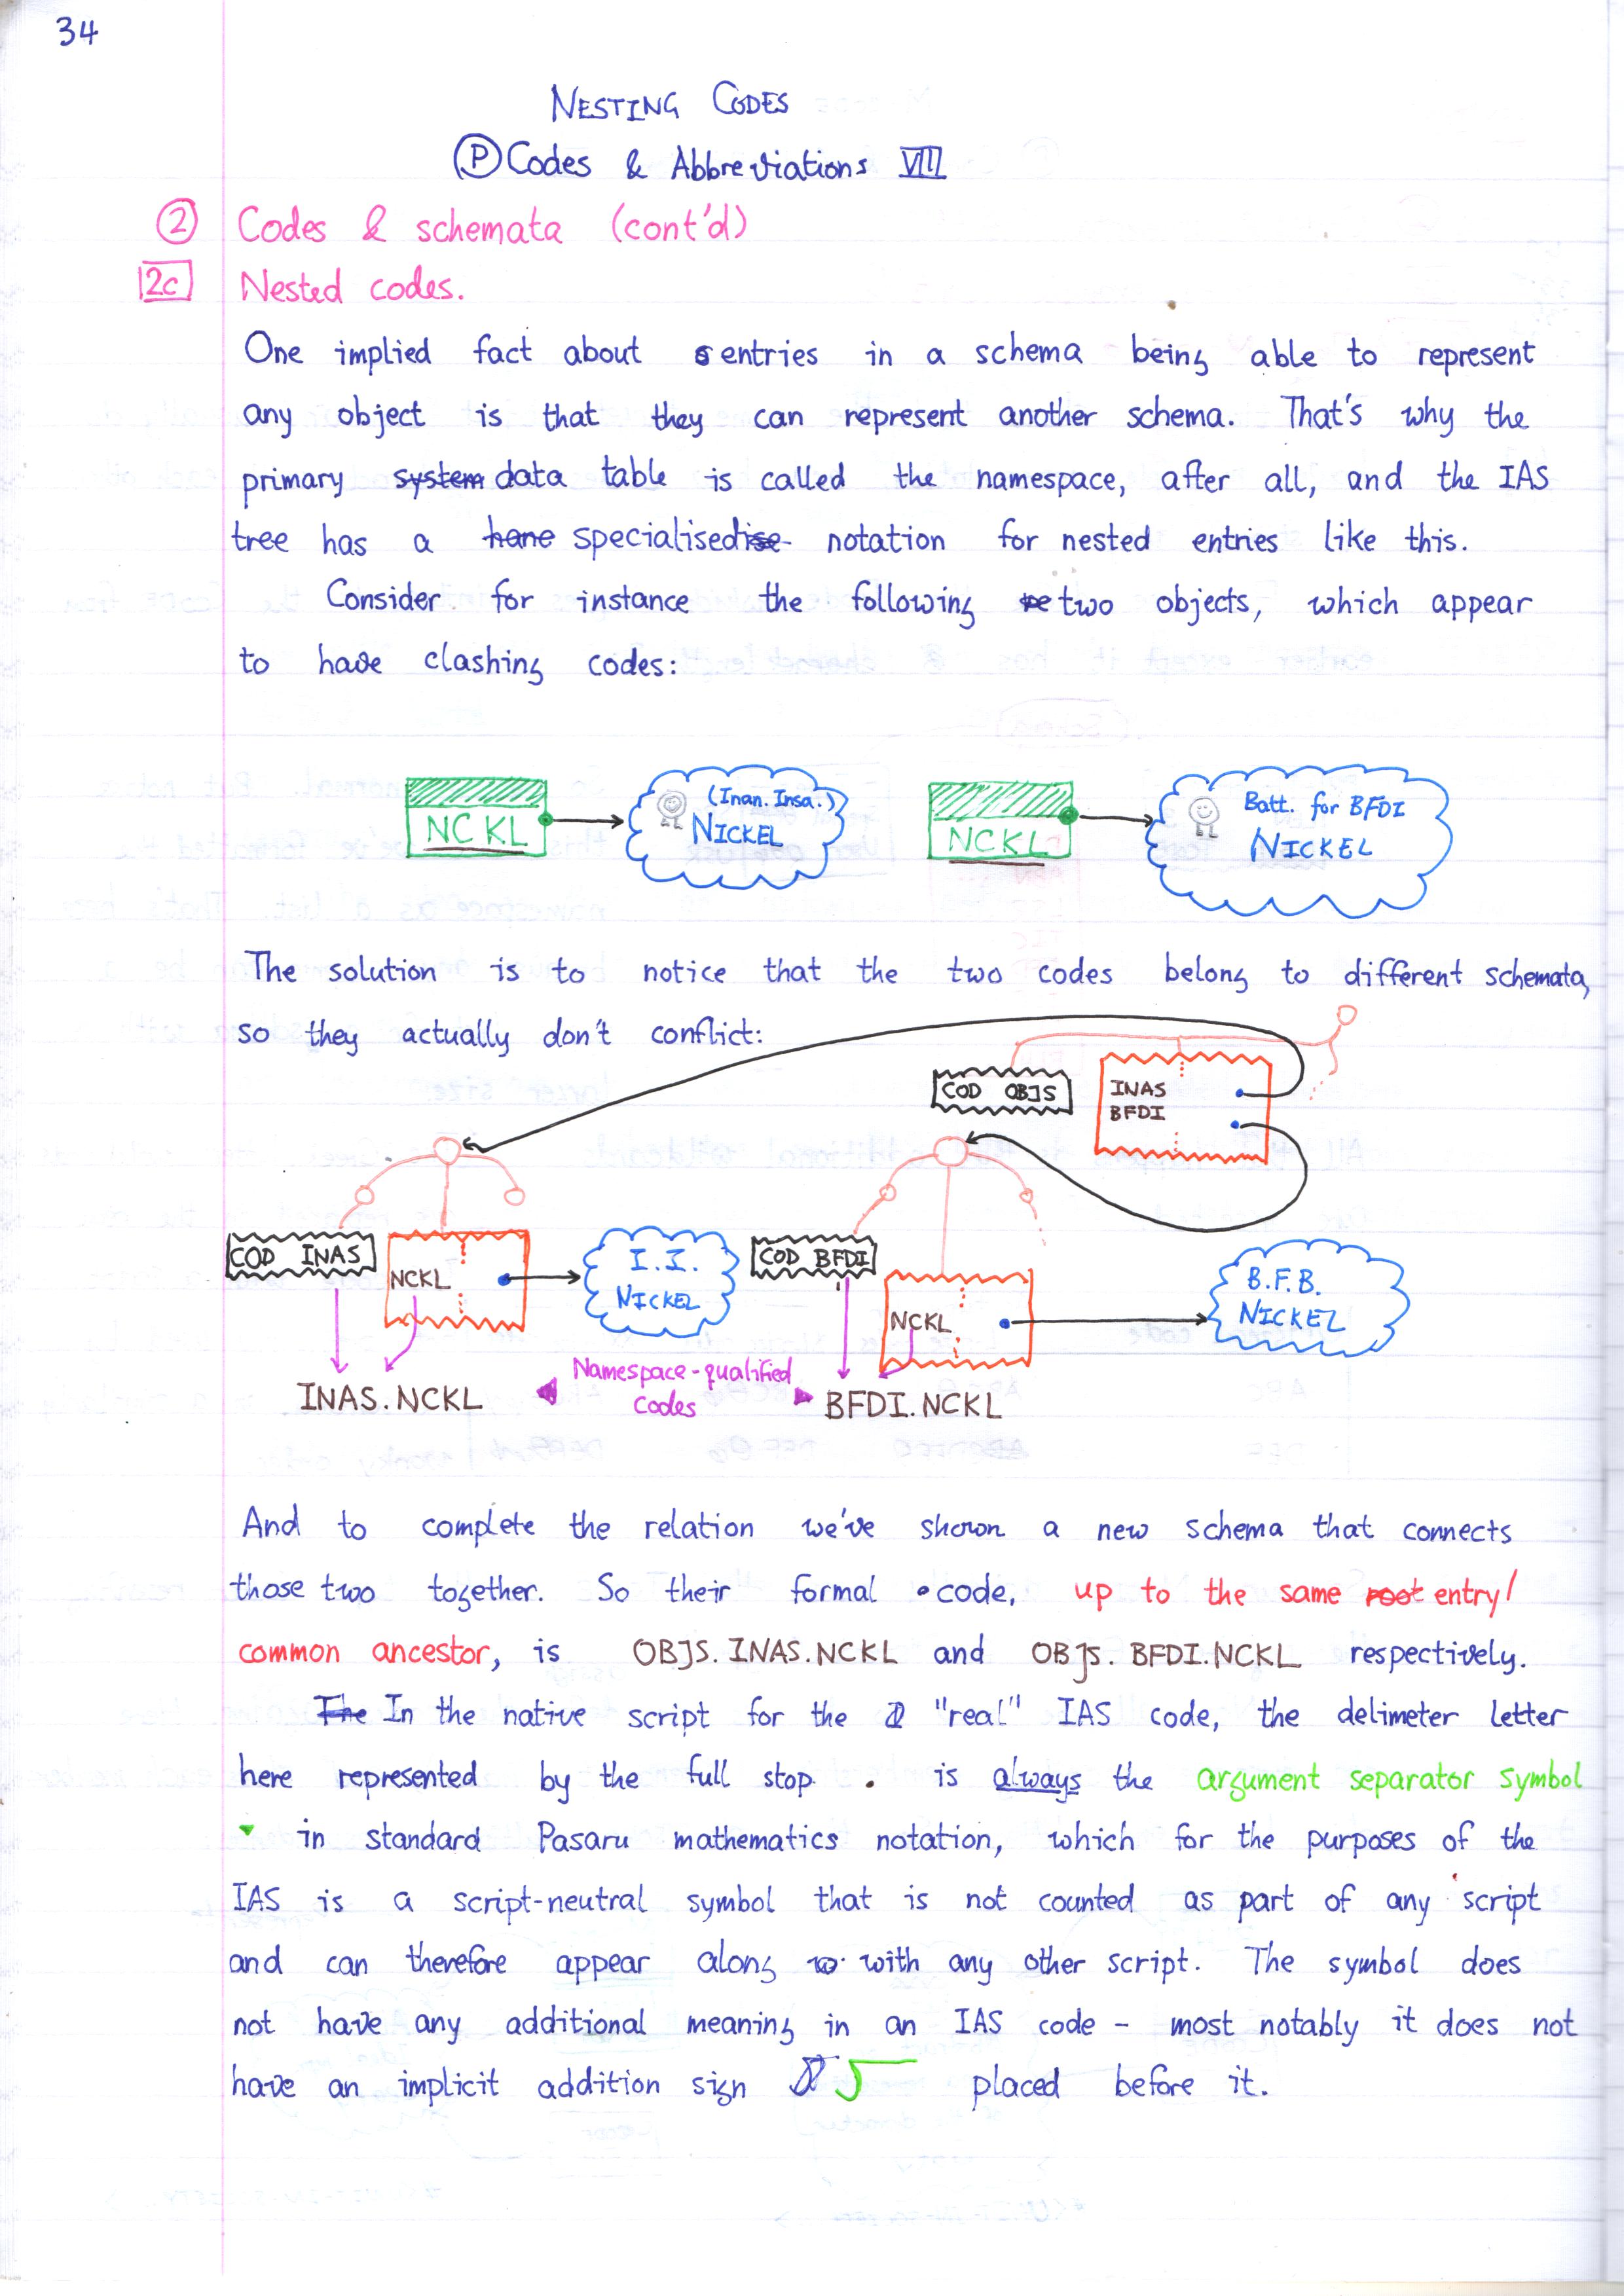 34
NESTING CODES
Ⓟ Codes & Abbreviations VIII
② Codes & schemata (cont'd)
2c Nested codes.
One implied fact about entries in a schema being able to represent
any object is that they can represent another schema. That's why the
primary system data table is called the namespace, after all, and the IAS
tree has a hane specialisedise notation for nested entries like this.
Consider for instance the following two objects, which appear
to have clashing codes:
NCKL
(Inan. Insa.)
NICKEL
NCKL
Batt. for BFDI
NICKEL
The solution is to notice that the two codes belong to different schemata,
so they actually don't conflict:
COD OBJS
INAS
BFDI
COD INAS
NCKL
I.I.
NICKEL
COD BFDI
NCKL
B.F.B.
NICKEL
Namespace-qualified
Codes
INAS.NCKL
BFDI.NCKL
And to complete the relation we've shown a new schema that connects
those two together. So their formal code, up to the same root entry/
common ancestor, is OBJS.INAS.NCKL and OBJS.BFDI.NCKL respectively.
The In the native script for the "real" IAS code, the delimeter letter
here represented by the full stop . is always the argument separator symbol
in standard Pasaru mathematics notation, which for the purposes of the
IAS is a script-neutral symbol that is not counted as part of any script
and can therefore appear along with any other script. The symbol does
not have any additional meaning in an IAS code - most notably it does not
have an implicit addition sign placed before it.